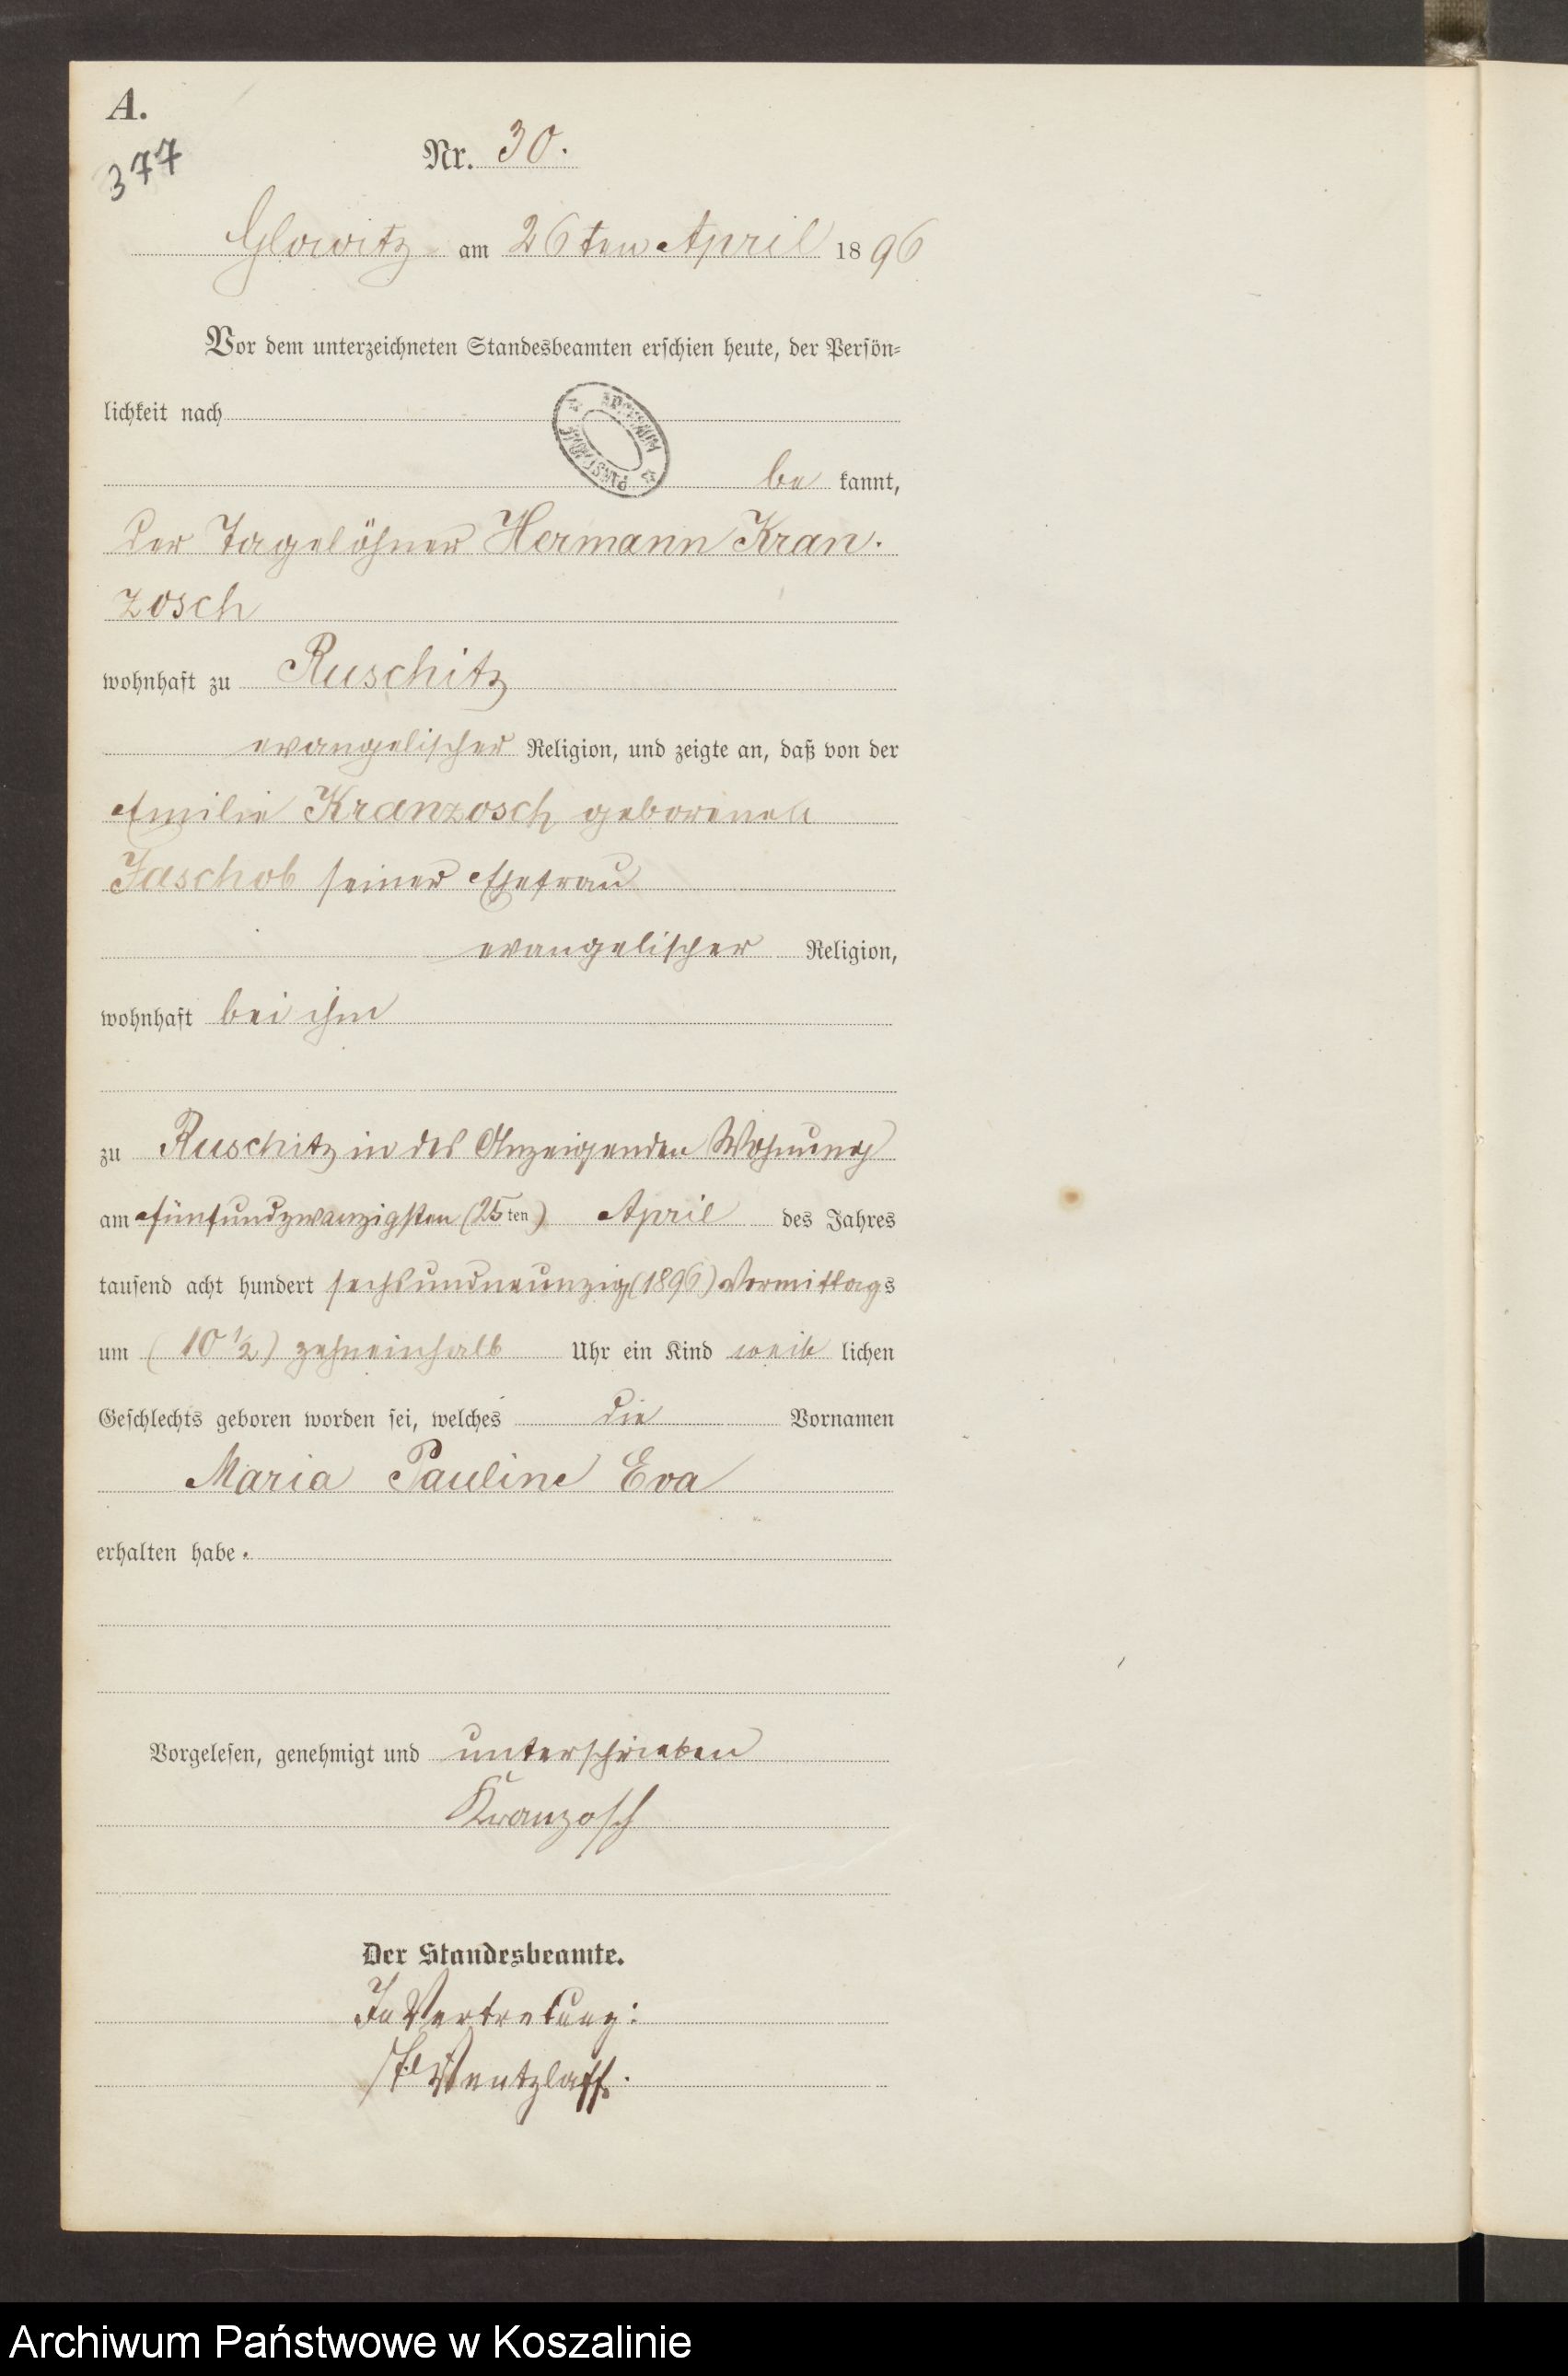 A.
377
Nr. 30.
Glowitz am 26ten April 1896
Vor dem unterzeichneten Standesbeamten erschien heute, der Persön=
lichkeit nach
ARCHIWUM PAŃSTWOWE
be kannt,
der Tagelöhner Hermann Kran.
zosch
wohnhaft zu Ruschitz
evangelischer Religion, und zeigte an, daß von der
Emilie Kranzosch geborenen
Jaschob seiner Ehefrau
evangelischer Religion,
wohnhaft bei ihm
zu Ruschitz in des Anzeigenden Wohnung
am fünfundzwanzigsten (25ten) April des Jahres
tausend acht hundert sechsundneunzig (1896) Vormittags
um (10 1/2) zehneinhalb Uhr ein Kind weib lichen
Geschlechts geboren worden sei, welches die Vornamen
Maria Pauline Eva
erhalten habe.
Vorgelesen, genehmigt und unterschrieben
Kranzosch
Der Standesbeamte.
In Vertretung:
Wentzlaff.
Archiwum Państwowe w Koszalinie